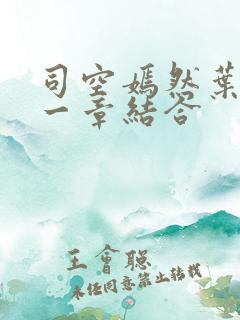 司空嫣然葉
一章結合
王會聰
未任同意禁止转载